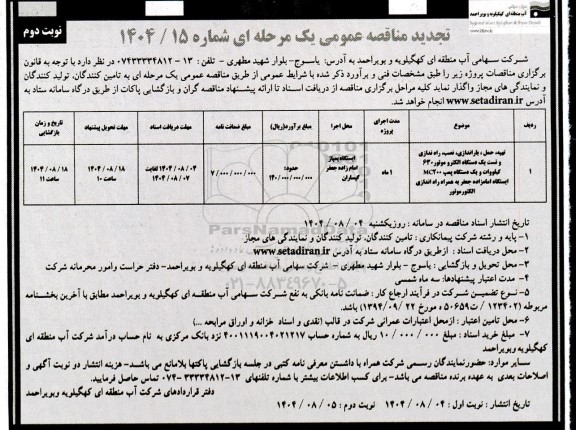 آب منطقه ای کهگیلویه و بویراحمد
نوبت دوم
تجدید مناقصه عمومی یک مرحله ای شماره ۱۵ / ۱۴۰۴
شرکت سهامی آب منطقه ای کهگیلویه و بویراحمد به آدرس: یاسوج- بلوار شهید مطهری - تلفن : ۱۳ - ۰۷۴۳۳۳۳۴۸۱۲ در نظر دارد با توجه به قانون
برگزاری مناقصات پروژه زیر را طبق مشخصات فنی و برآورد ذکر شده با شرایط عمومی از طریق مناقصه عمومی یک مرحله ای به تامین کنندگان، تولید کنندگان
و نمایندگی های مجاز واگذار نماید کلیه مراحل برگزاری مناقصه از دریافت اسناد تا ارائه پیشنهاد مناقصه گران و بازگشایی پاکات از طریق درگاه سامانه ستاد به
آدرس www.setadiran.ir انجام خواهد شد.
ردیف
موضوع
مدت اجرای پروژه
محل اجرا
مبلغ برآورد(ریال)
مبلغ ضمانت نامه
مهلت دریافت اسناد
مهلت تحویل پیشنهاد
تاریخ و زمان بازگشایی
۱
تهیه، حمل، باراندازی، نصب، راه اندازی
و تست یک دستگاه الکترو موتور ۶۳۰
کیلووات و یک دستگاه پمپ MC۲۰۰
ایستگاه امامزاده جعفر به همراه راه اندازی
الکتروموتور
۱ ماه
ایستگاه پمپاژ
امام زاده جعفر
گچساران
حدود:
۱۴۰/۰۰۰/۰۰۰/۰۰۰
۷/۰۰۰/۰۰۰/۰۰۰
۰۴ / ۰۸ / ۱۴۰۴ لغایت
۰۷ / ۰۸ / ۱۴۰۴
۱۸ / ۰۸ / ۱۴۰۴
ساعت ۱۰
۱۸ / ۰۸ / ۱۴۰۴
ساعت ۱۱
تاریخ انتشار اسناد مناقصه در سامانه : روز یکشنبه ۰۴ / ۰۸ / ۱۴۰۴
۱- پایه و رشته شرکت پیمانکاری : تامین کنندگان، تولید کنندگان و نمایندگی های مجاز
۲- محل دریافت اسناد : از طریق درگاه سامانه ستاد به آدرس www.setadiran.ir
۳- محل تحویل و بازگشایی : یاسوج - بلوار شهید مطهری - شرکت سهامی آب منطقه ای کهگیلویه و بویراحمد- دفتر حراست وامور محرمانه شرکت
۴- مدت اعتبار پیشنهادها: سه ماه شمسی
۵- نوع تضمین شرکت در فرآیند ارجاع کار : ضمانت نامه بانکی به نفع شرکت سهامی آب منطقه ای کهگیلویه و بویراحمد مطابق با آخرین بخشنامه
مربوطه (۱۲۳۴۰۲ / ت۵۰۶۵۹ ه مورخ ۲۲ /۰۹/ ۱۳۹۴) باشد.
۶- محل تامین اعتبار : ازمحل اعتبارات عمرانی شرکت در قالب (نقدی و اسناد خزانه و اوراق مرابحه ...)
۷- مبلغ خرید اسناد : مبلغ ۰۰۰ / ۰۰۰ / ۱۰ ریال به شماره حساب ۴۰۰۱۱۱۹۰۰۴۰۲۱۲۱۷ نزد بانک مرکزی به نام حساب درآمد شرکت آب منطقه ای
کهگیلویه وبویراحمد
سایر موارد: حضورنمایندگان رسمی شرکت همراه با داشستن معرفی نامه کتبی در جلسه بازگشایی پاکتها بلامانع می باشد- هزینه انتشار دو نوبت آگهی و
اصلاحات بعدی به عهده برنده مناقصه می باشد- برای کسب اطلاعات بیشتر با شماره تلفنهای ۱۳-۳۳۳۳۴۸۱۲ -۰۷۴ تماس حاصل فرمایید.
دفتر قراردادهای شرکت آب منطقه ای کهگیلویه وبویراحمد
تاریخ انتشار : نوبت اول : ۰۴ / ۰۸ / ۱۴۰۴ نوبت دوم : ۰۵ / ۰۸ / ۱۴۰۴
ParsNamadData
۰۲۱-۸۸۳۴۹۶۷۰-۵